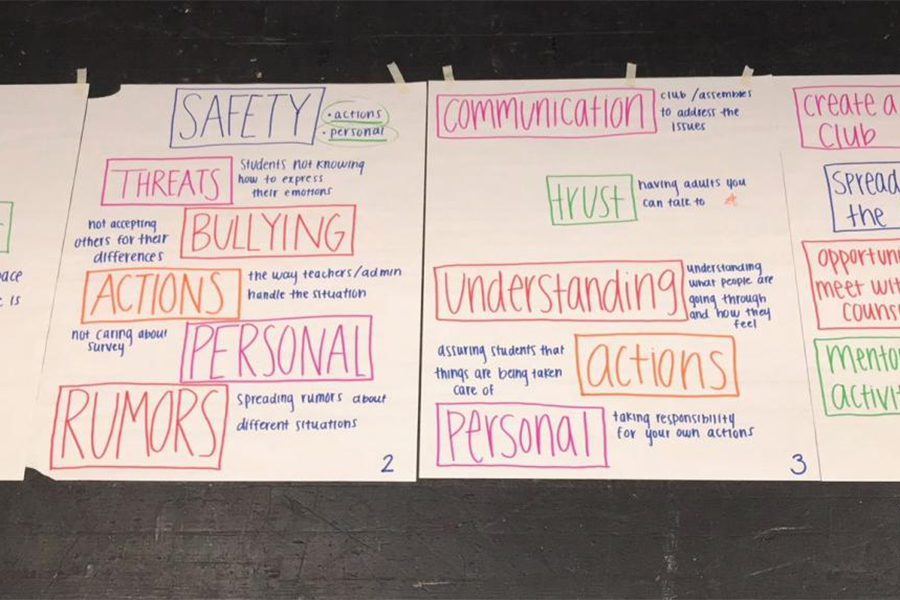 SAFETY
• actions
• personal
THREATS
Students not knowing
how to express
their emotions
not accepting
others for their
differences
BULLYING
ACTIONS
the way teachers/admin
handle the situation
not caring about
survey
PERSONAL
RUMORS
spreading rumors about
different situations
2
communication
club/assemblies
to address the
issues
trust
having adults you
can talk to
understanding
understanding
what people are
going through
and how they
feel
assuring students that
things are being taken
care of
actions
personal
taking responsibility
for your own actions
3
create a
club
spread
the
meet